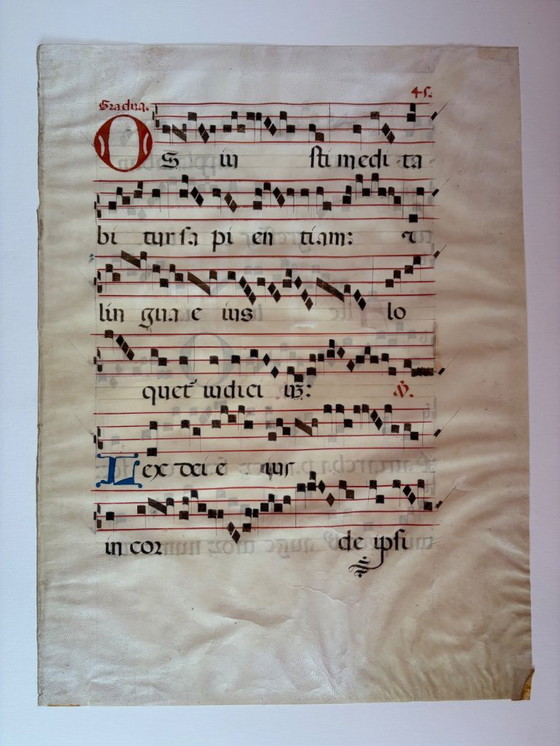 Gradua. 45.
OS iu sti medi ta
bi tur sa pi en tiam: et
lin gua e ius lo
quet iudici uz: V.
Lex dei e ius
in cor de ipsi